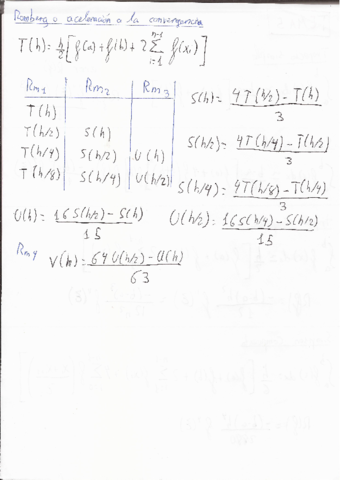 Romberg o aceleración a la convergencia
T(h) = h/2 [f(a) + f(b) + 2 ∑_{i=1}^{n-1} f(xi)]
Rm1 Rm2 Rm3
T(h)
T(h/2) S(h)
T(h/4) S(h/2) U(h)
T(h/8) S(h/4) U(h/2)
S(h) = (4T(h/2) - T(h))/3
S(h/2) = (4T(h/4) - T(h/2))/3
S(h/4) = (4T(h/8) - T(h/4))/3
U(h) = (16S(h/2) - S(h))/15 U(h/2) = (16S(h/4) - S(h/2))/15
Rm4 V(h) = (64U(h/2) - U(h))/63